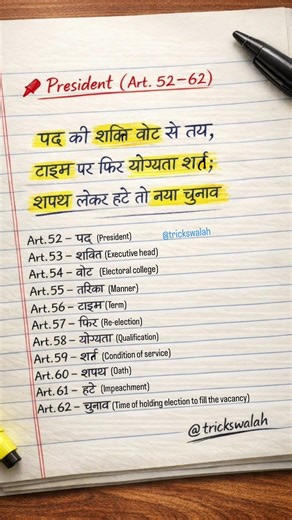 President (Art. 52–62)
पद की शक्ति वोट से तय,
टाइम पर फिर योग्यता शर्त;
शपथ लेकर हटे तो नया चुनाव
Art.52 – पद (President) @trickswalah
Art.53 – शक्ति (Executive head)
Art.54 – वोट (Electoral college)
Art.55 – तरिका (Manner)
Art.56 – टाइम (Term)
Art.57 – फिर (Re-election)
Art.58 – योग्यता (Qualification)
Art.59 – शर्त (Condition of service)
Art.60 – शपथ (Oath)
Art.61 – हटे (Impeachment)
Art.62 – चुनाव (Time of holding election to fill the vacancy)
@trickswalah